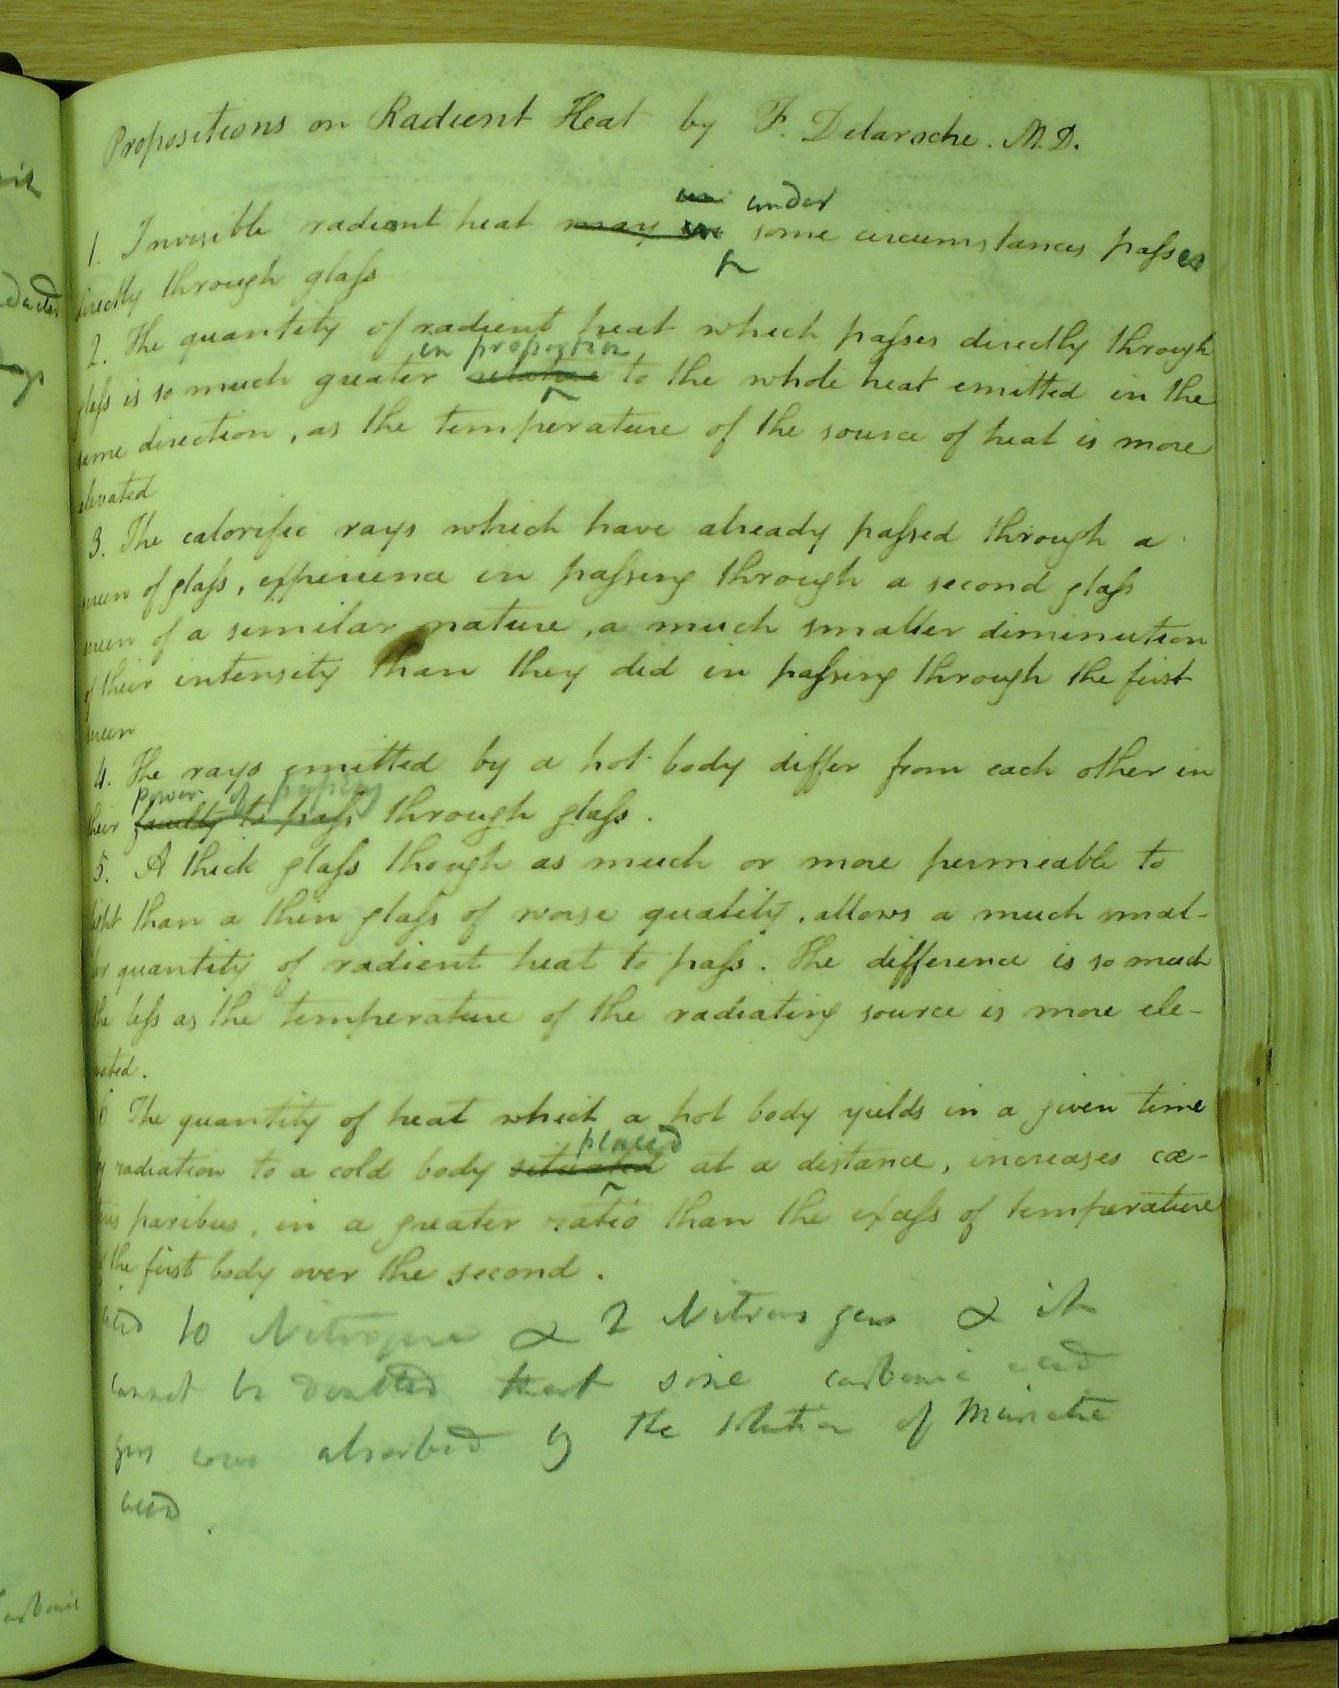 Propositions on Radient Heat by F. Delaroche. M.D.
under
1. Invisible radiant heat may in some circumstances passes
directly through glass
2. The quantity of radient heat which passes directly through
in proportion
glass is so much greater relative to the whole heat emitted in the
same direction, as the temperature of the source of heat is more
elevated
3. The calorific rays which have already passed through a
screen of glass, experience in passing through a second glass
screen of a similar nature, a much smaller diminution
of their intensity than they did in passing through the first
screen
4. The rays emitted by a hot body differ from each other in
power of passing
their faculty to pass through glass.
5. A thick glass though as much or more permeable to
light than a thin glass of worse quality, allows a much smal-
ler quantity of radient heat to pass. The difference is so much
the less as the temperature of the radiating source is more ele-
vated.
6 The quantity of heat which a hot body yields in a given time
placed
by radiation to a cold body situated at a distance, increases cæ-
teris paribus, in a greater ratio than the excess of temperature
of the first body over the second.
10 Nitrogene & 2 Nitrous gas & it
cannot be doubted that some carbonic acid
gas was absorbed by the solution of Muriatic
acid.